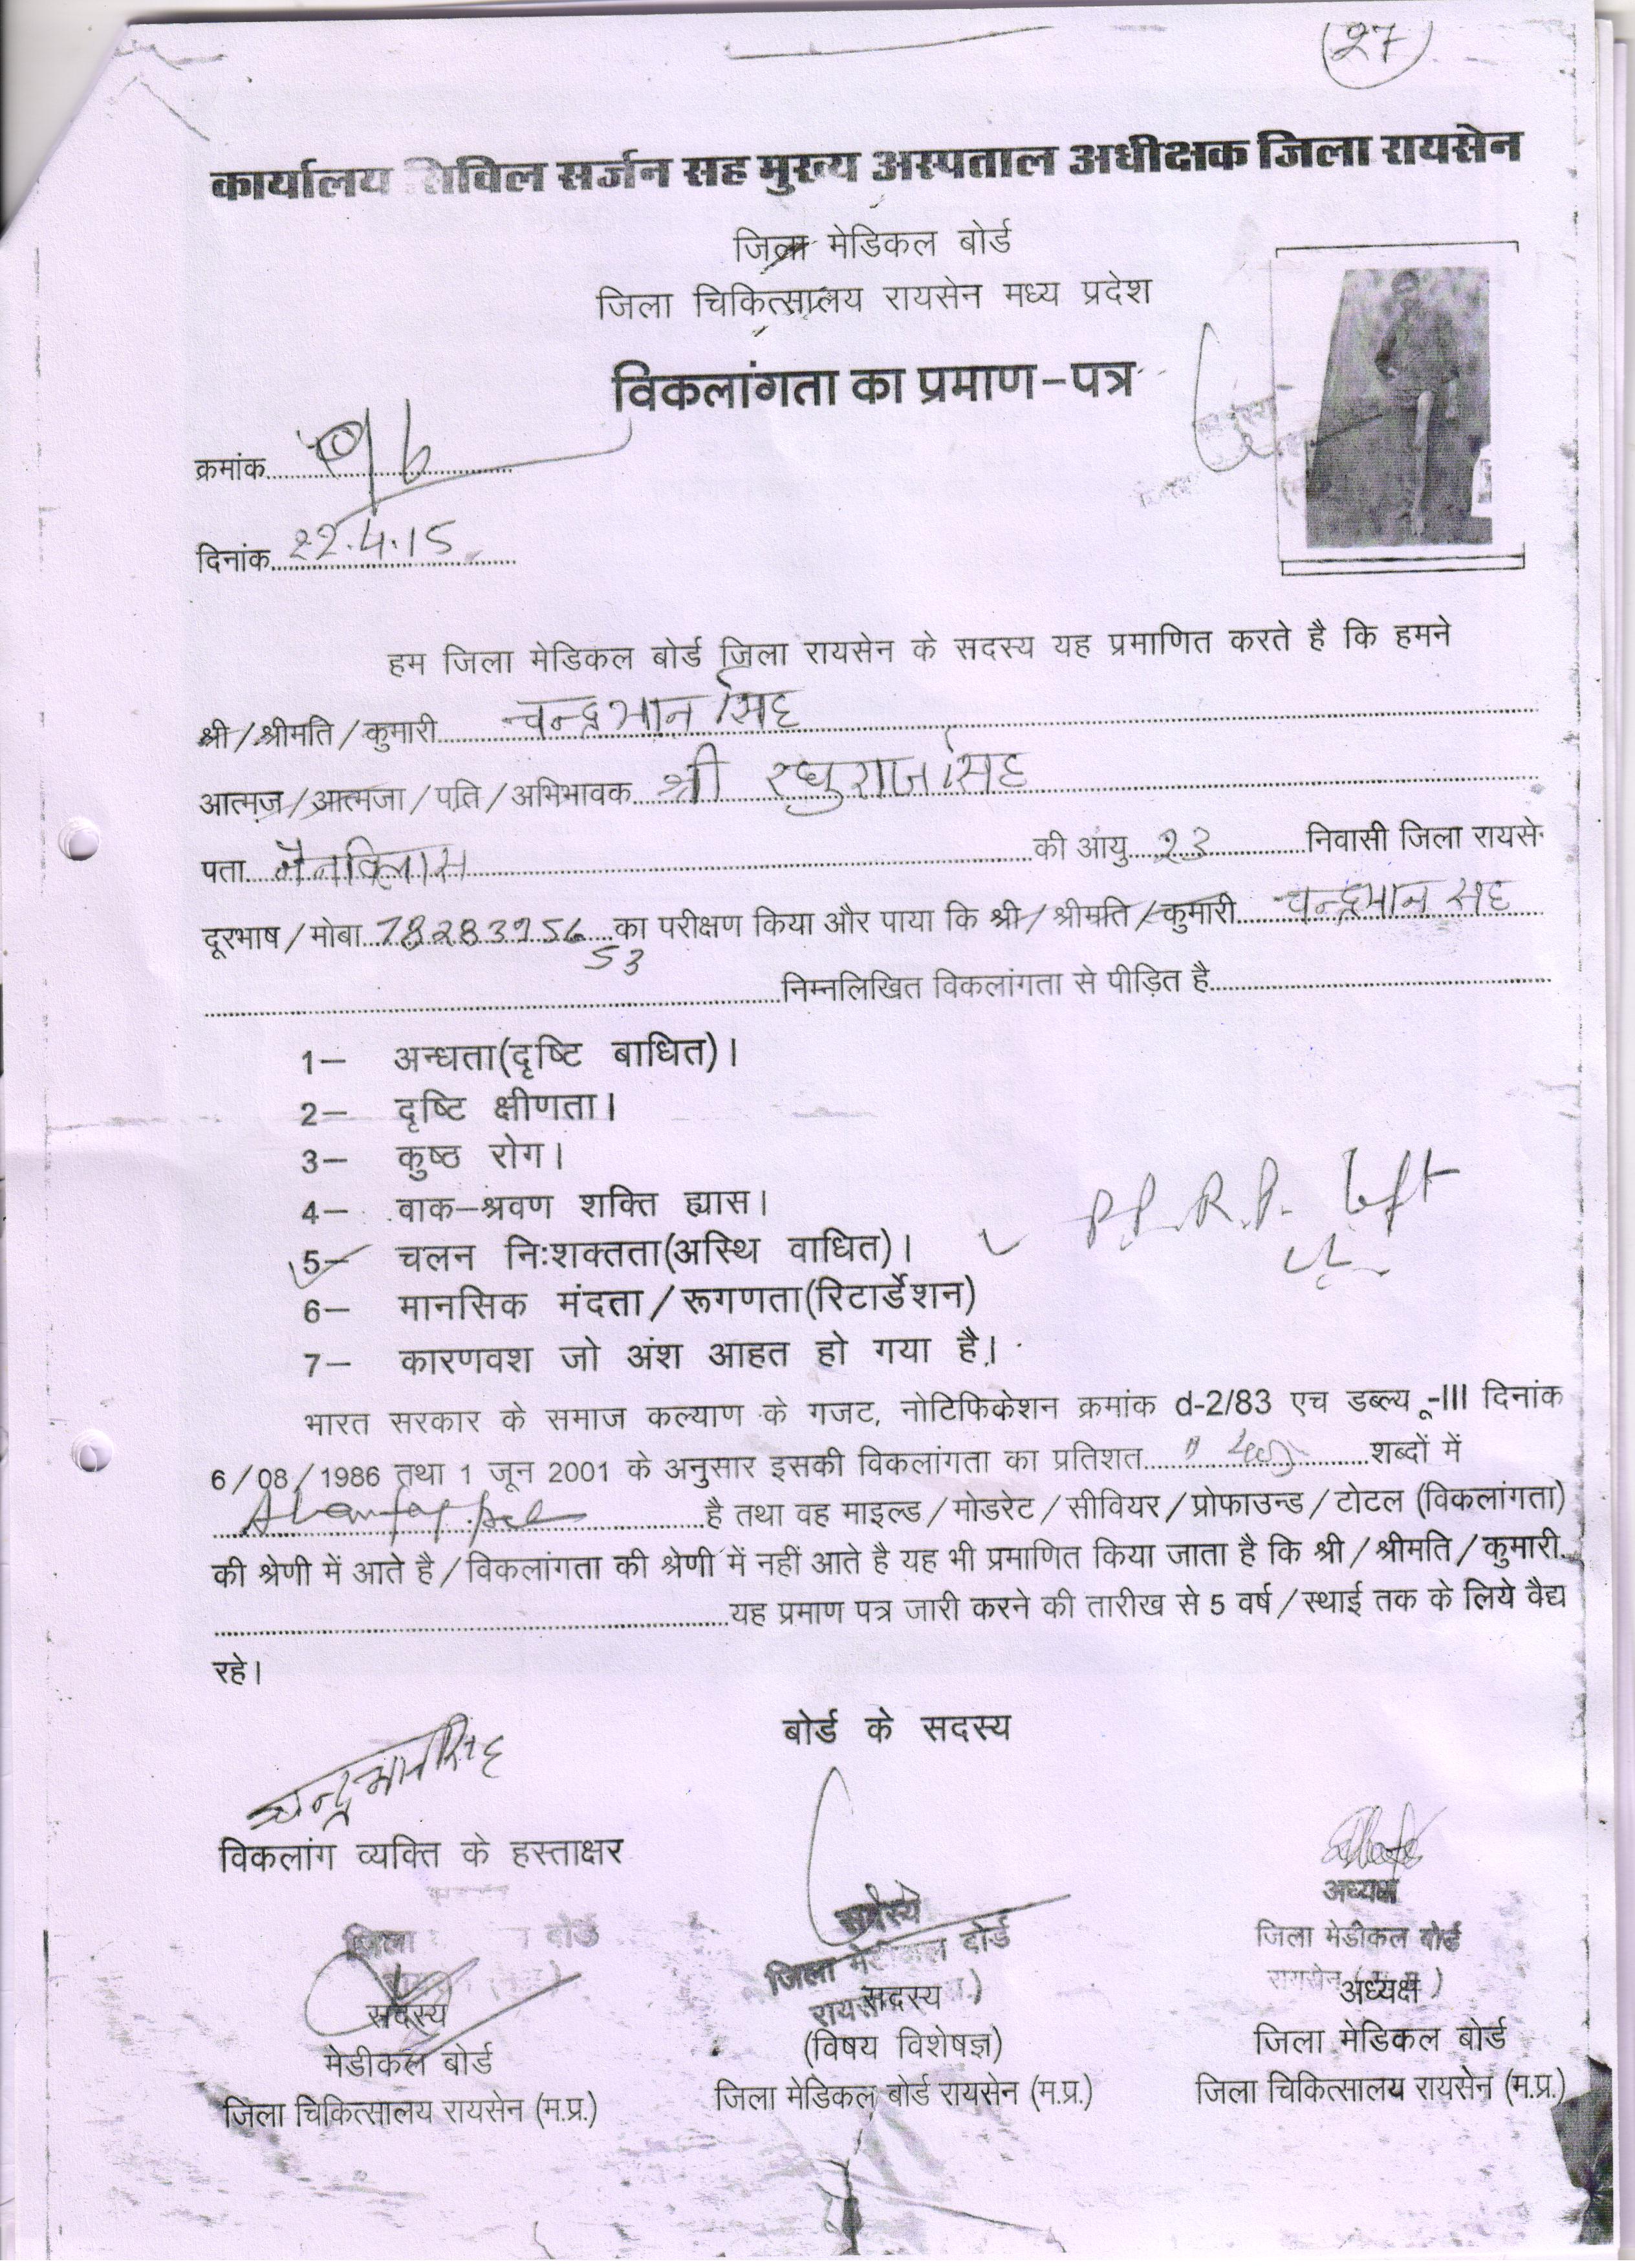 27
कार्यालय सिविल सर्जन सह मुख्य अस्पताल अधीक्षक जिला रायसेन
जिला मेडिकल बोर्ड
जिला चिकित्सालय रायसेन मध्य प्रदेश
विकलांगता का प्रमाण-पत्र
क्रमांक
दिनांक 22.4.15
हम जिला मेडिकल बोर्ड जिला रायसेन के सदस्य यह प्रमाणित करते है कि हमने
श्री/श्रीमति/कुमारी चन्द्रभान सिंह
आत्मज/आत्मजा/पति/अभिभावक श्री रघुराज सिंह
पता नैनविलास की आयु 23 निवासी जिला रायसे
दूरभाष/मोबा का परीक्षण किया और पाया कि श्री/श्रीमति/कुमारी चन्द्रभान सिंह
53
निम्नलिखित विकलांगता से पीड़ित है
1- अन्धता(दृष्टि बाधित)।
2- दृष्टि क्षीणता।
3- कुष्ठ रोग।
4- वाक-श्रवण शक्ति ह्यास।
P.P.R.P. left
5- चलन निःशक्तता(अस्थि वाधित)।
6- मानसिक मंदता/रूगणता(रिटार्डेशन)
7- कारणवश जो अंश आहत हो गया है।
भारत सरकार के समाज कल्याण के गजट, नोटिफिकेशन क्रमांक d-2/83 एच डब्ल्यू-III दिनांक
6/08/1986 तथा 1 जून 2001 के अनुसार इसकी विकलांगता का प्रतिशत शब्दों में
है तथा वह माइल्ड/मोडरेट/सीवियर/प्रोफाउन्ड/टोटल (विकलांगता)
की श्रेणी में आते है/विकलांगता की श्रेणी में नहीं आते है यह भी प्रमाणित किया जाता है कि श्री/श्रीमति/कुमारी
यह प्रमाण पत्र जारी करने की तारीख से 5 वर्ष/स्थाई तक के लिये वैद्य
रहे।
बोर्ड के सदस्य
चन्द्रभान सिंह
विकलांग व्यक्ति के हस्ताक्षर
अध्यक्ष
जिला बोर्ड
सदस्य
जिला मेडीकल बोर्ड
जिला मेडीकल बोर्ड
रायसेन
सदस्य
सदस्य
अध्यक्ष
मेडीकल बोर्ड
(विषय विशेषज्ञ)
जिला मेडिकल बोर्ड
जिला चिकित्सालय रायसेन (म.प्र.)
जिला मेडिकल बोर्ड रायसेन (म.प्र.)
जिला चिकित्सालय रायसेन (म.प्र.)